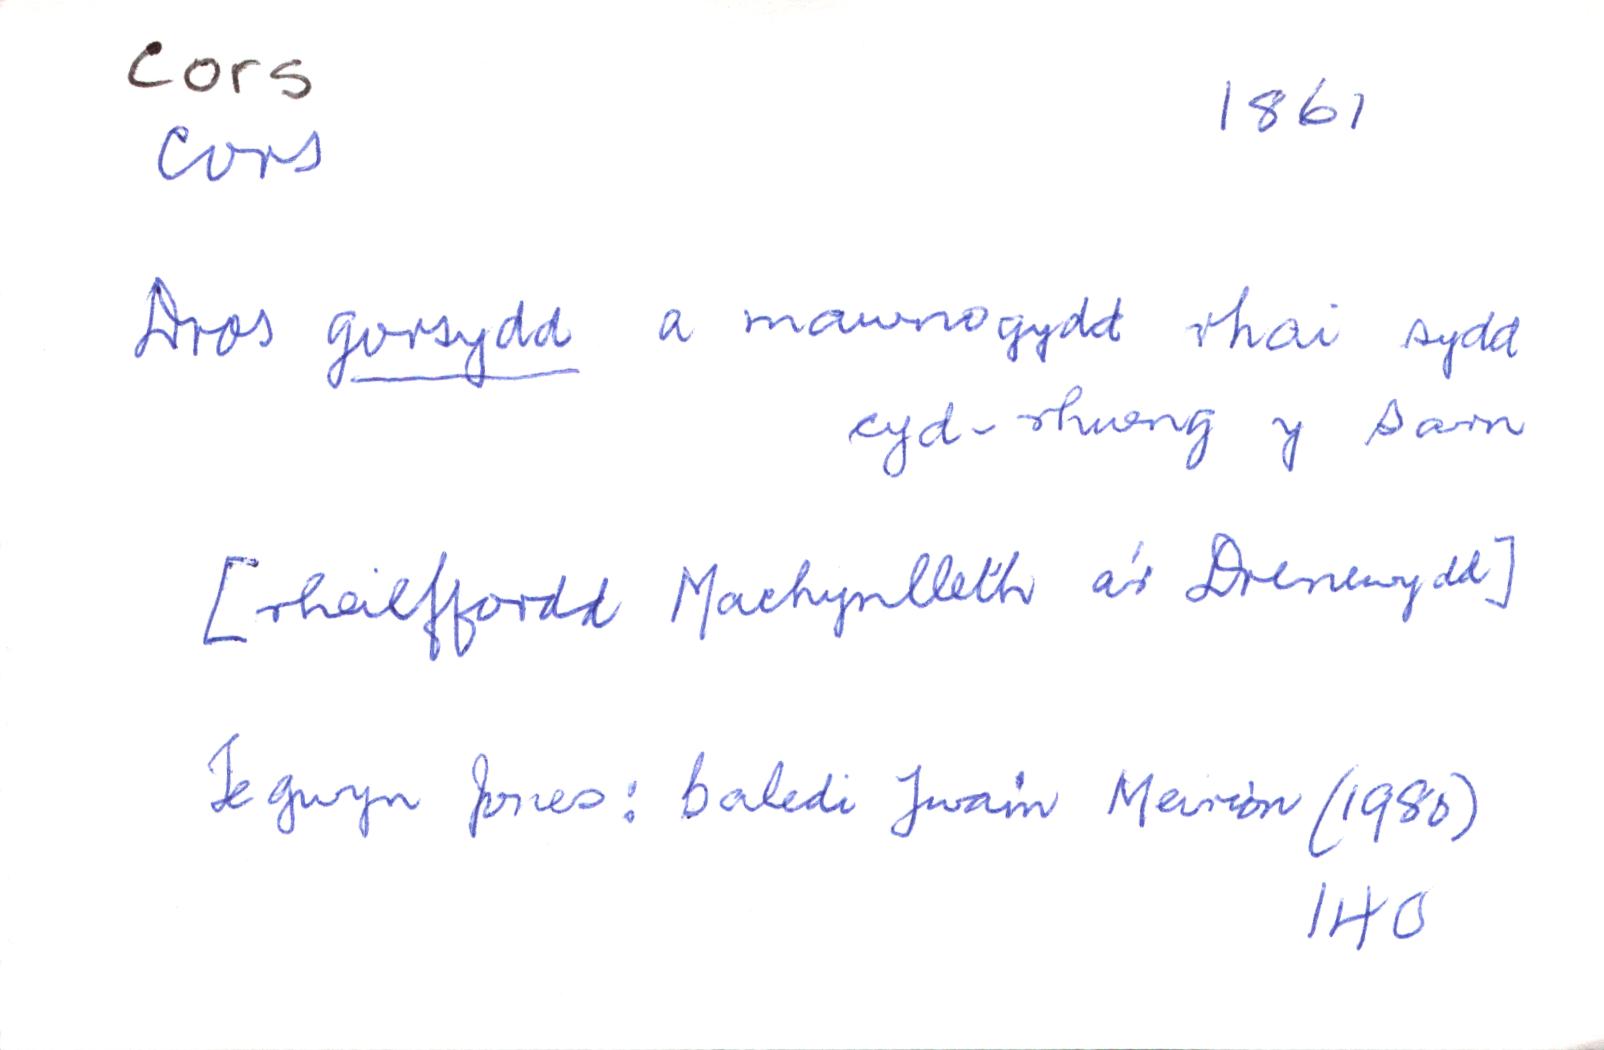 Cors
Cors 1861
Dros gorsydd a mawnogydd rhai sydd
cyd-rhwng y Sarn
[rheilffordd Machynlleth a'r Drenewydd]
Tegwyn Jones: baledi Ywain Meirion (1980)
140